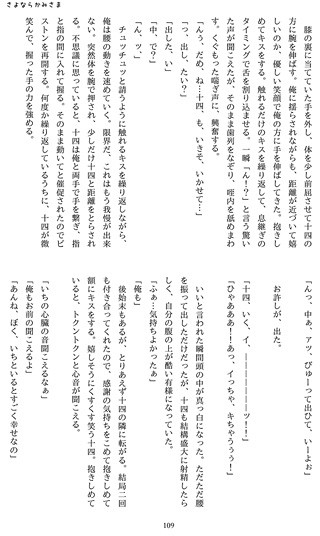 さよならかみさま
膝の裏に当てていた手を外し、体を少し前屈させて十四の
方に腕を伸ばす。俺に揺らされながらも、距離が近づいて嬉
しいのか、優しい笑顔で俺の方に手を伸ばしてきた。抱きし
めてキスをする。触れるだけのキスを繰り返して、息継ぎの
タイミングで舌を割り込ませる。一瞬「ん!?」と言う驚い
た声が聞こえたが、そのまま歯列をなぞり、咥内を舐めまわ
す。くぐもった喘ぎ声に、興奮する。
「んぅ、だめ、ね…十四、も、いきそ、いかせて…」
「っ、出し、たい?」
「出した、い」
「中、で?」
「ん、ッ。」
チュッチュッと請うように触れるキスを繰り返しながら、
俺は腰の動きを速めていく。限界だ、これはもう我慢が出来
ない、突然体を腕で押され、少しだけ十四と距離をとらされ
る。不思議に思っていると、十四は俺と両手で手を繋ぎ、指
と指の間に入れて握る。そのまま動いてと催促されたのでピ
ストンを再開する。何度か繰り返しているうちに、十四が微
笑んで、握った手の力を強める。
「んっ、中ぁ、アッ、びゅーって出ひて、いーよぉ」
お許しが、出た。
「十四、いく、イ、―――――――ッ!!」
「ひゃあああ!!あっ、イっちゃ、キちゃうぅぅ!」
いいと言われた瞬間頭の中が真っ白になった。ただただ腰
を振って出しただけだったが、十四も結構盛大に射精したら
しく、自分の腹の上が酷い有様になっていた。
「ふぁ…気持ちよかったぁ」
「俺も」
後始末もあるが、とりあえず十四の隣に転がる。結局二回
も付き合ってくれたので、感謝の気持ちをこめて抱きしめて
額にキスをする。嬉しそうにくすくす笑う十四。抱きしめて
いると、トクントクンと心音が聞こえる。
「いちの心臓の音聞こえるなぁ」
「俺もお前の聞こえるよ」
「あんね、ぼく、いちといるとすごく幸せなの」
109